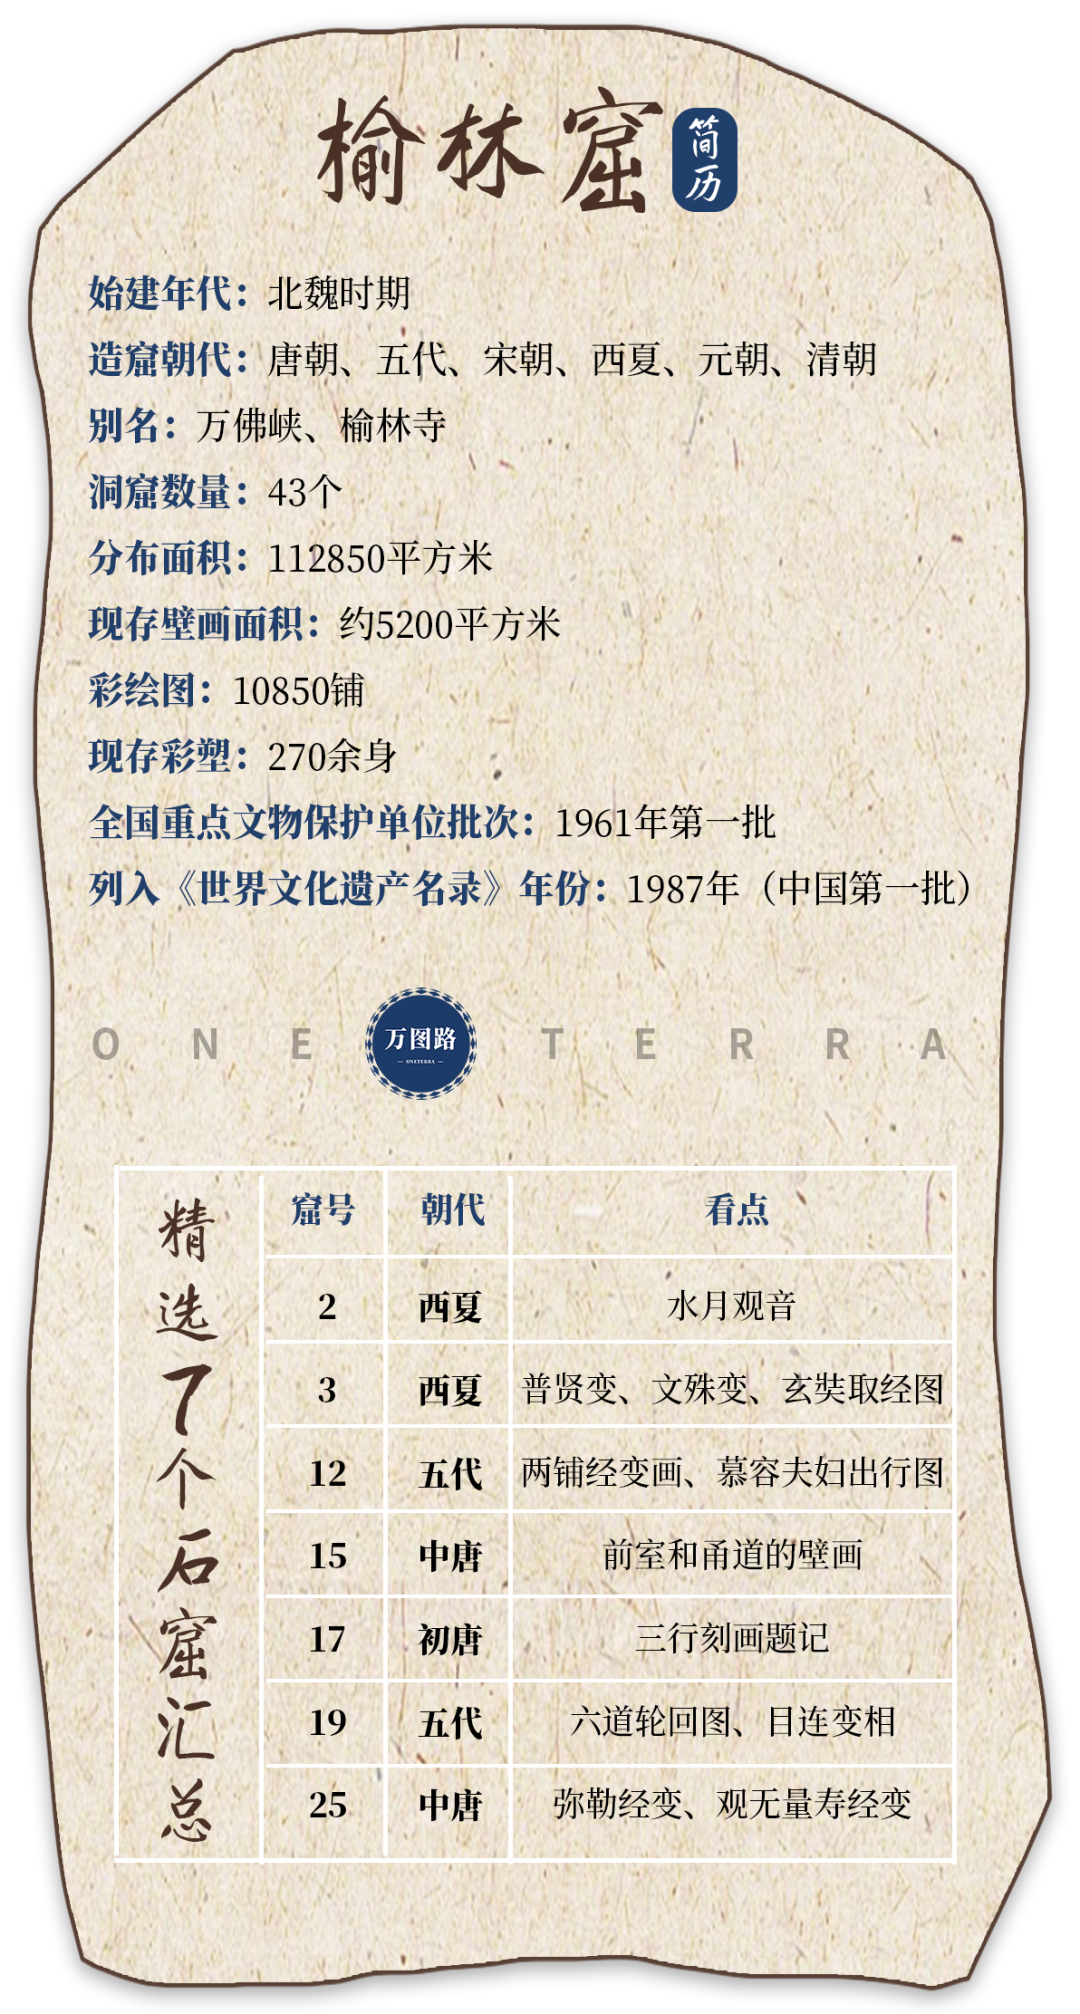 榆林窟 简历
始建年代：北魏时期
造窟朝代：唐朝、五代、宋朝、西夏、元朝、清朝
别名：万佛峡、榆林寺
洞窟数量：43个
分布面积：112850平方米
现存壁画面积：约5200平方米
彩绘图：10850铺
现存彩塑：270余身
全国重点文物保护单位批次：1961年第一批
列入《世界文化遗产名录》年份：1987年（中国第一批）
ONE 万图路 TERRA
— ONETERRA —
精选7个石窟汇总
窟号 朝代 看点
2 西夏 水月观音
3 西夏 普贤变、文殊变、玄奘取经图
12 五代 两铺经变画、慕容夫妇出行图
15 中唐 前室和甬道的壁画
17 初唐 三行刻画题记
19 五代 六道轮回图、目连变相
25 中唐 弥勒经变、观无量寿经变